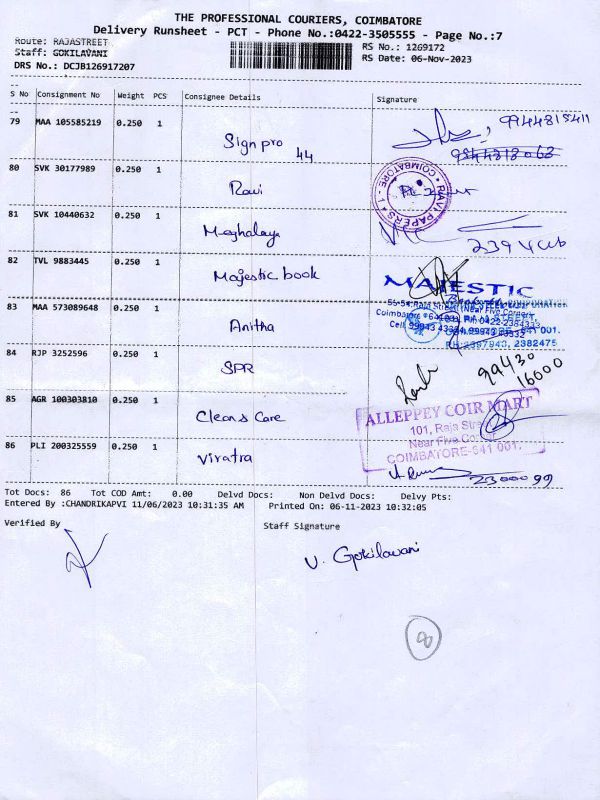 THE PROFESSIONAL COURIERS, COIMBATORE
Delivery Runsheet - PCT - Phone No.:0422-3505555 - Page No.:7
Route: RAJASTREET
RS No.: 1269172
Staff: GOKILAVANI
RS Date: 06-Nov-2023
DRS No.: DCJB126917207
S No Consignment No Weight PCS Consignee Details Signature
79 MAA 105585219 0.250 1 Sign pro 44 9944815411
80 SVK 30177989 0.250 1 Ravi
RAVI PAPERS * COIMBATORE - 1 *
81 SVK 10440632 0.250 1 Meghalaya
82 TVL 9883445 0.250 1 Majestic book
MAJESTIC
83 MAA 573089648 0.250 1 Anitha
84 RJP 3252596 0.250 1 SPR 99430
16000
85 AGR 100303810 0.250 1 Clean & Care
ALLEPPEY COIR MART
101, Raja Street
Near Five Corner
COIMBATORE-641 001.
86 PLI 200325559 0.250 1 Viratra 2300099
Tot Docs: 86 Tot COD Amt: 0.00 Delvd Docs: Non Delvd Docs: Delvy Pts:
Entered By :CHANDRIKAPVI 11/06/2023 10:31:35 AM Printed On: 06-11-2023 10:32:05
Verified By Staff Signature
V. Gokilavani
8